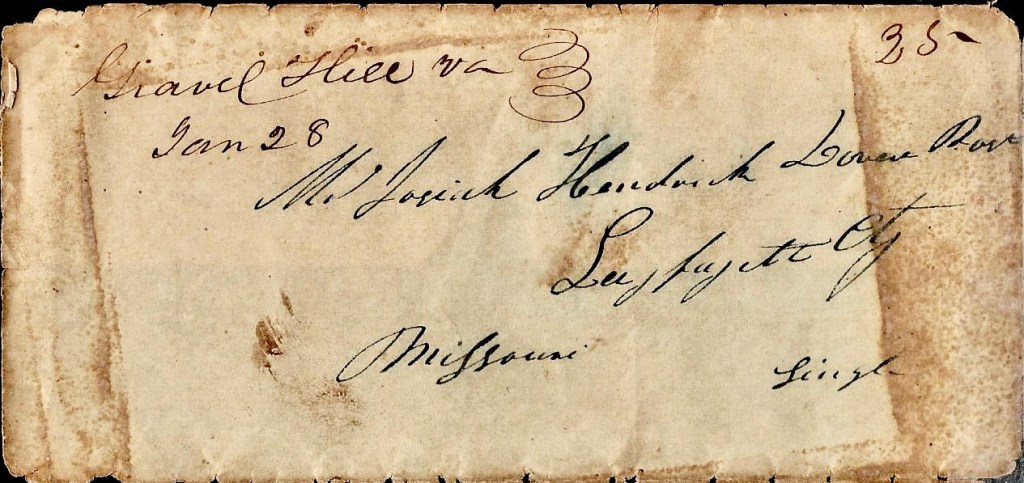 Gravel Hill va
25
Jan 28
Mr Josiah Hendrick Dover Post
Layfayette Cty
Missouri
Single